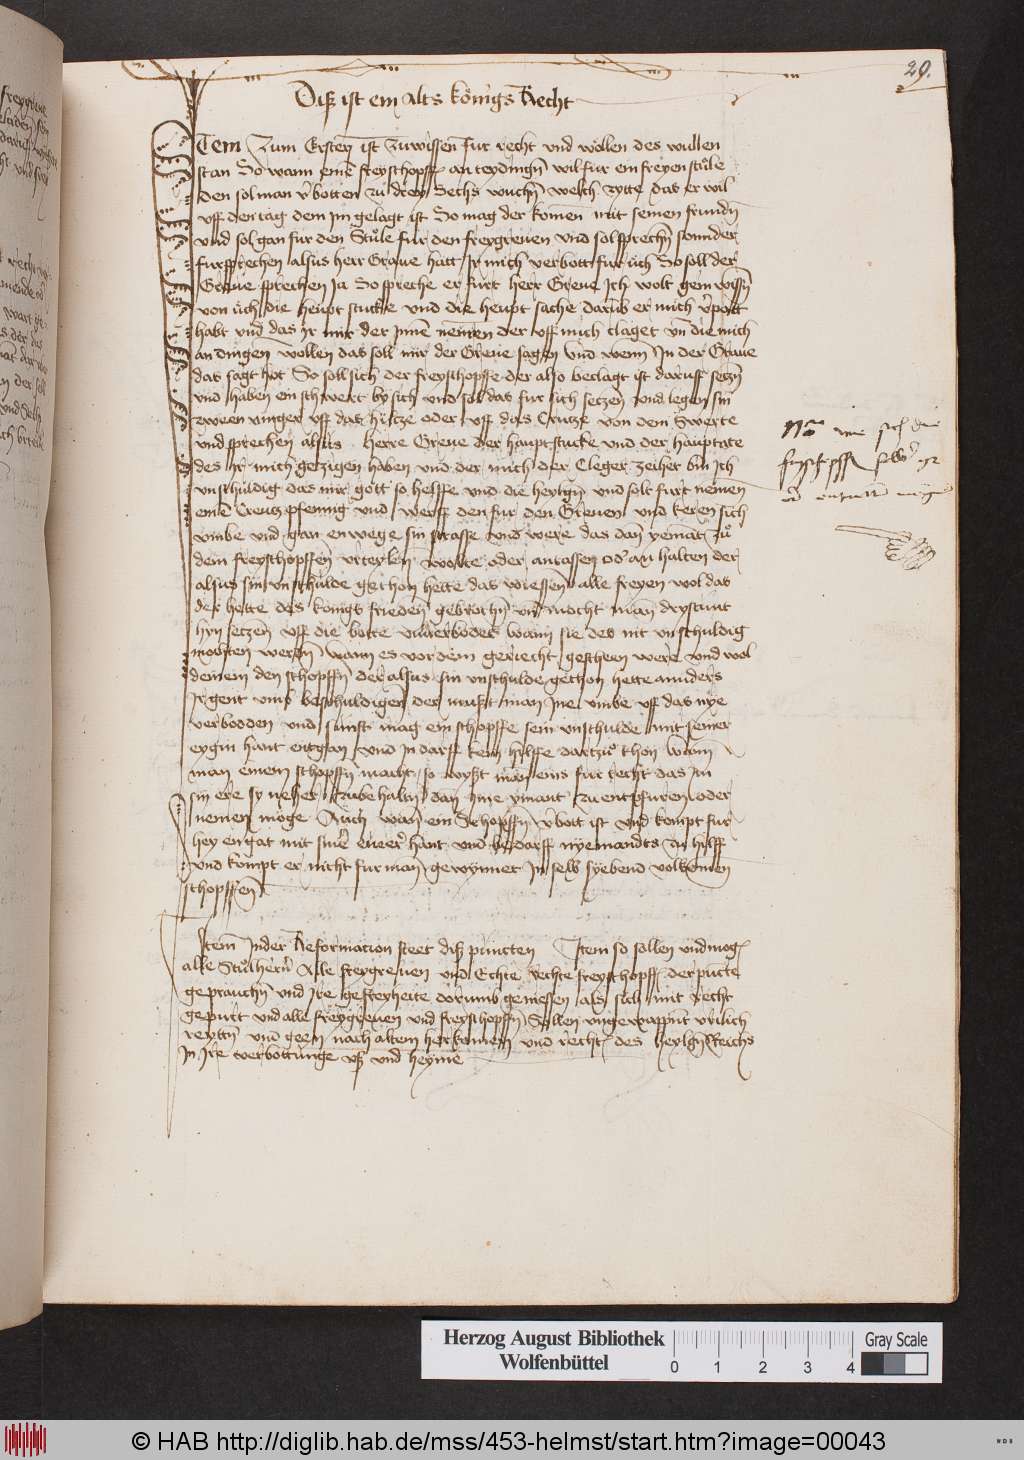 29.
Diß ist ein alts königs Recht
Item Zum Ersten ist zuwissen fur recht vnd wöllen des wullen
stan So wann eine freyschopff an teydingn wil fur ein freyen stule
den sol man vbotten zu drey Sechs wuchn welch zytte das er wil
vff den tag dem Im gelagt ist So mag der komen mit seinen frundn
vnd sol gan fur den Stule fur den freygreuen vnd sol sprechn sonnder
fursprechen alsus herr Graue hatt Ir mich verbott fur uch So soll der
Greue sprechen Ja So spreche er furt herr Greue Ich wolt gern wissn
von uch die heupt stucke vnd die heupt sache darub er mich vbott
habt vnd das Ir mir der Inne nemen der vff mich claget vn die mich
an dingen wollen das soll mir der Greue sagen Vnd wenn In der Graue
das sagt hot So soll sich der freyschopffe der also beclagt ist daruff setzn
vnd haben ein schwert by sich vnd sol das fur sich setzen vnd legen sin
zween vinger vff das hiltze oder vff das Crutze von dem Swerte
vnd sprechen alsus herre Greue der haupt stucke vnd der hauptate
des Ir mich getzigen haben vnd der mich der Cleger zeihet bin Ich
vnschuldig das mir gott so helffe vnd die heylgn vnd solt furt nemen
eine Creutzpfennig vnd werff den fur den Greuen vnd keren sich
vmbe vnd gan enwege sin strasse vnd were das dan yemat zu
dem freyschopffen vrteylen wolte oder antassen od an halten der
alsus sin vnschulde gethon hette das wiessen alle freyen wol das
der hette des konigs frieden gebrochn vn mocht man drystunt
hyn setzen vff die botte vnuerboder wann sie des nit vnschuldig
mochten werden wann es vor dem gericht gescheen were vnd wol
demem den schopffn der alsus sin vnschulde gethon hette annders
Irgent vmb beschuldigen der must man Ine vmbe vff das nye
verbodden vnd sunst mag ein schopffe sein vnschulde mit seiner
eygin hant entgan vnd In darff kein hilffe dartzu thon wann
man einem schopffn macht so wyst man eins fur recht das Im
sin ere sy neher zubehaltn dan Ime ymant zu entpfuren oder
nemen moge Auch wan ein Schopffn vbott ist vnd kompt fur
hey engat mit sine einer hant vnd bedarff nyemandts zu hilff
vnd kompt er nicht fur man gewynnet In selb syebend volkomen
schopffen
Item Inder Reformacion steet diß puncten Item so sollen vnd mog
alle Stulhern Alle freygreuen vnd Echte rechte freyschopff der pucte
geprauchn vnd Ire gefreyheite dorumb geniessen als sich mit recht
gepurt vnd alle freygreuen vnd freyschopffn Sollen vngewappnt vrilich
reyttn vnd geen nach altem herkomen vnd recht des heylgn Reichs
In Ire verbottunge vß vnd heyme
Herzog August Bibliothek
Wolfenbüttel
0 1 2 3 4
Gray Scale
© HAB http://diglib.hab.de/mss/453-helmst/start.htm?image=00043